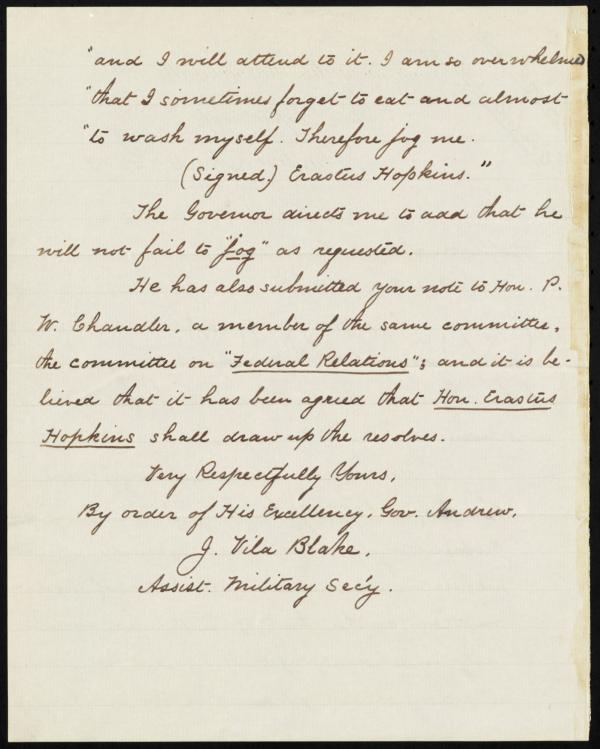 "and I will attend to it. I am so overwhelmed
"that I sometimes forget to eat and almost
"to wash myself. Therefore jog me.
(Signed.) Erastus Hopkins."
The Governor directs me to add that he
will not fail to "jog" as requested.
He has also submitted your note to Hon. P.
W. Chandler, a member of the same committee,
the committee on "Federal Relations"; and it is be-
lieved that it has been agreed that Hon. Erastus
Hopkins shall draw up the resolves.
Very Respectfully Yours,
By order of His Excellency, Gov. Andrew,
J. Vila Blake,
Assist. Military Sec'y.